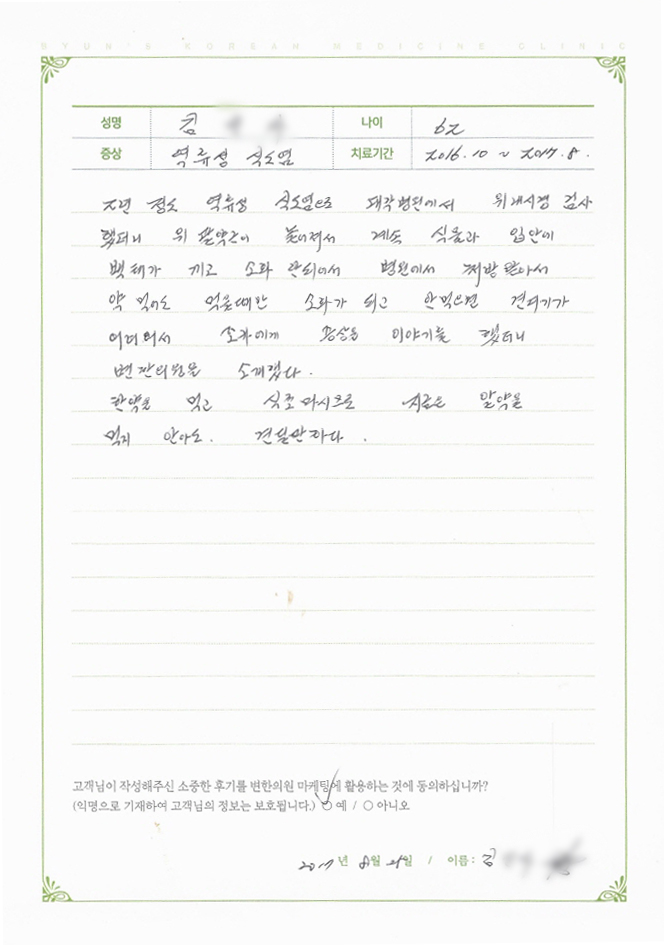 BYUN'S KOREAN MEDICINE CLINIC
성명 김 나이 62
증상 역류성 식도염 치료기간 2016.10 ~ 2017.8.
2년 정도 역류성 식도염으로 대학병원에서 위내시경 검사
했더니 위 괄약근이 늘어져서 계속 식욕과 입안에
백태가 끼고 소화 안되어서 병원에서 처방 받아서
약 먹어도 먹을때만 소화가 되고 안먹으면 견디기가
어려워서 소개 증상을 이야기를 했더니
변한의원을 소개했다.
한약을 먹고 식초 마시므로 지금은 알약을
먹지 안아도. 견딜만하다.
고객님이 작성해주신 소중한 후기를 변한의원 마케팅에 활용하는 것에 동의하십니까?
(익명으로 기재하여 고객님의 정보는 보호됩니다.) ○ 예 / ○ 아니오
2017년 8월 21일 / 이름 : 김